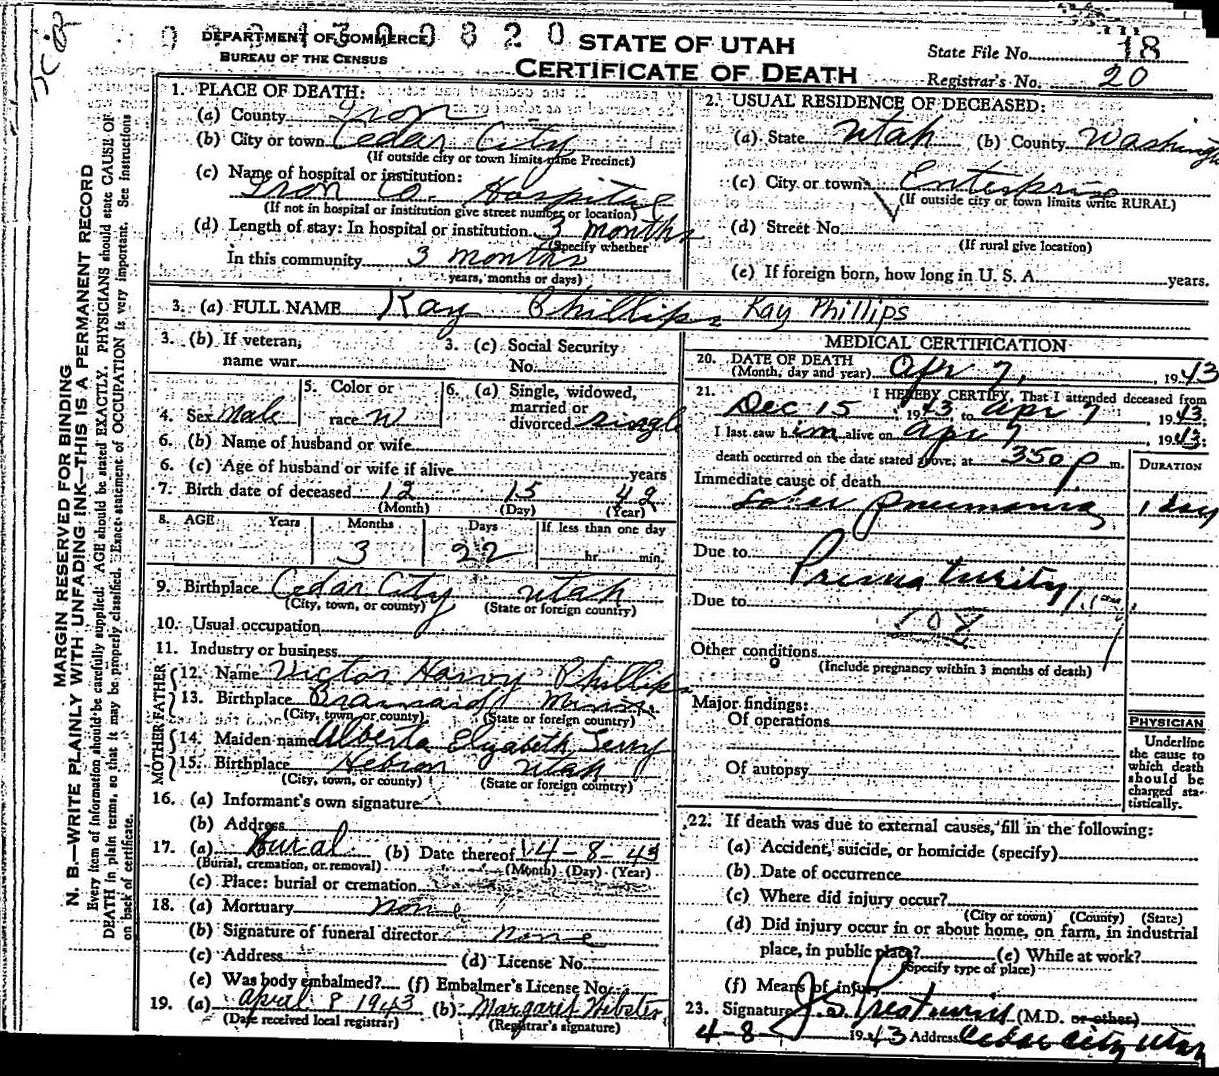 0 0 2 1 3 0 0 8 2 0
DEPARTMENT OF COMMERCE
BUREAU OF THE CENSUS
STATE OF UTAH
CERTIFICATE OF DEATH
State File No. 18
Registrar's No. 20
MARGIN RESERVED FOR BINDING
N. B.—WRITE PLAINLY WITH UNFADING INK—THIS IS A PERMANENT RECORD
Every item of information should be carefully supplied. AGE should be stated EXACTLY. PHYSICIANS should state CAUSE OF
DEATH in plain terms, so that it may be properly classified. Exact statement of OCCUPATION is very important. See instructions
on back of certificate.
1. PLACE OF DEATH:
(a) County Iron
(b) City or town Cedar City
(If outside city or town limits name Precinct)
(c) Name of hospital or institution:
Iron Co. Hospital
(If not in hospital or institution give street number or location)
(d) Length of stay: In hospital or institution 3 months
(Specify whether
In this community 3 months
years, months or days)
2. USUAL RESIDENCE OF DECEASED:
(a) State Utah (b) County Washing
(c) City or town Enterprise
(If outside city or town limits write RURAL)
(d) Street No.
(If rural give location)
(e) If foreign born, how long in U. S. A. years.
3. (a) FULL NAME Kay Phillips Kay Phillips
3. (b) If veteran, name war
3. (c) Social Security No.
4. Sex Male
5. Color or race W
6. (a) Single, widowed, married or divorced single
6. (b) Name of husband or wife
6. (c) Age of husband or wife if alive years
7. Birth date of deceased 12 15 42
(Month) (Day) (Year)
8. AGE Years Months Days If less than one day
3 22 hr. min.
9. Birthplace Cedar City Utah
(City, town, or county) (State or foreign country)
10. Usual occupation
11. Industry or business
FATHER
12. Name Victor Harvy Phillips
13. Birthplace Brainard Minn.
(City, town, or county) (State or foreign country)
MOTHER
14. Maiden name Alberta Elizabeth Terry
15. Birthplace Hebron Utah
(City, town, or county) (State or foreign country)
16. (a) Informant's own signature
(b) Address
17. (a) Burial (b) Date thereof 4-8-43
(Burial, cremation, or removal) (Month) (Day) (Year)
(c) Place: burial or cremation
18. (a) Mortuary none
(b) Signature of funeral director none
(c) Address (d) License No.
(e) Was body embalmed? (f) Embalmer's License No.
19. (a) April 8 1943 (b) Margaret Webster
(Date received local registrar) (Registrar's signature)
MEDICAL CERTIFICATION
20. DATE OF DEATH
(Month, day and year) Apr 7, 1943
21. I HEREBY CERTIFY, That I attended deceased from
Dec 15, 1943 to Apr 7 1943;
I last saw him alive on Apr 7, 1943;
death occurred on the date stated above, at 350 p m.
DURATION
Immediate cause of death
Lobar pneumonia 1 day
Due to Prematurity
Due to
108
Other conditions
(Include pregnancy within 3 months of death)
Major findings:
Of operations
Of autopsy
PHYSICIAN
Underline
the cause to
which death
should be
charged sta-
tistically.
22. If death was due to external causes, fill in the following:
(a) Accident, suicide, or homicide (specify)
(b) Date of occurrence
(c) Where did injury occur?
(City or town) (County) (State)
(d) Did injury occur in or about home, on farm, in industrial
place, in public place? (e) While at work?
(Specify type of place)
(f) Means of injury
23. Signature J. S. Prestwich (M.D. or other)
4-8 1943 Address Cedar City Utah